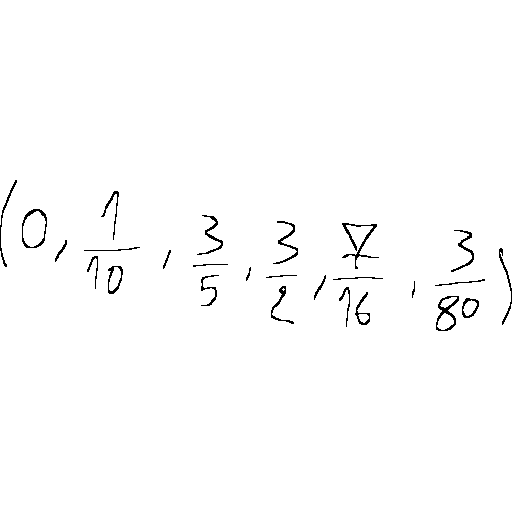 (0, 1/10, 3/5, 3/2, 7/16, 3/80)